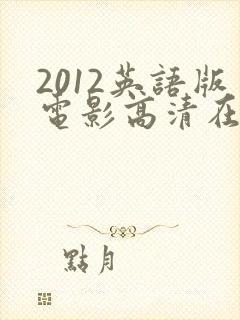 2012英語版
電影高清在
點月